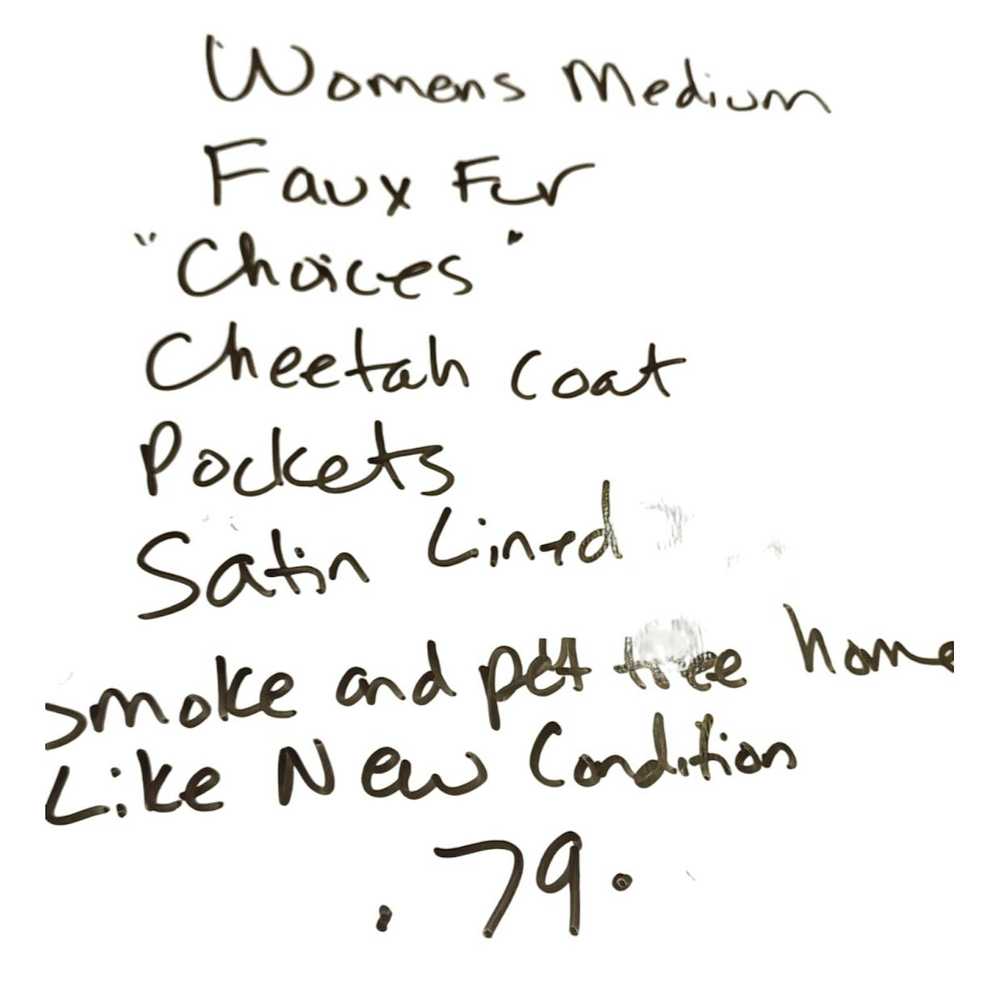 Womens Medium
Faux Fur
"Choices"
Cheetah Coat
Pockets
Satin Lined
Smoke and pet free home
Like New Condition
. 79.